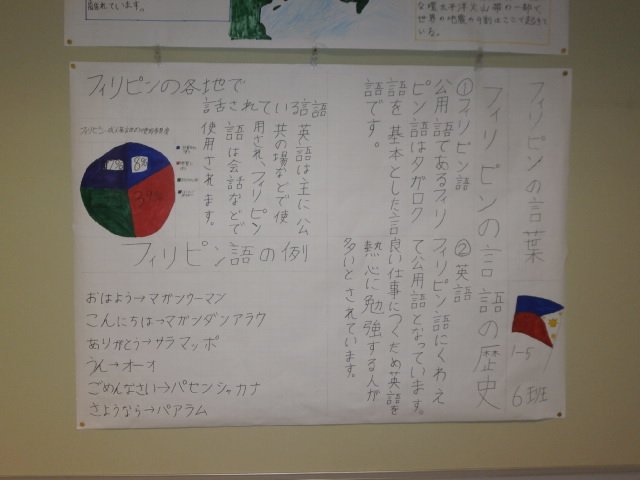 な環太平洋火山帯の一部で、
世界の地震の9割はここで起きて
いる。
フィリピンの言葉
1-5
6班
フィリピンの言語の歴史
①フィリピン語
公用語であるフィリ
ピン語はタガログ
語を基本とした言
語です。
②英語
フィリピン語にくわえ
て公用語となっています。
良い仕事につくため英語を
熱心に勉強する人が
多いとされています。
フィリピンの各地で
話されている言語
英語は主に公
共の場などで使
用され、フィリピン
語は会話などで
使用されます。
17%
8%
39%
フィリピン語の例
おはよう→マガンウーマン
こんにちは→マガンダンアラウ
ありがとう→サラマッポ
うん→オーオ
ごめんなさい→パセンシャカナ
さようなら→パアラム